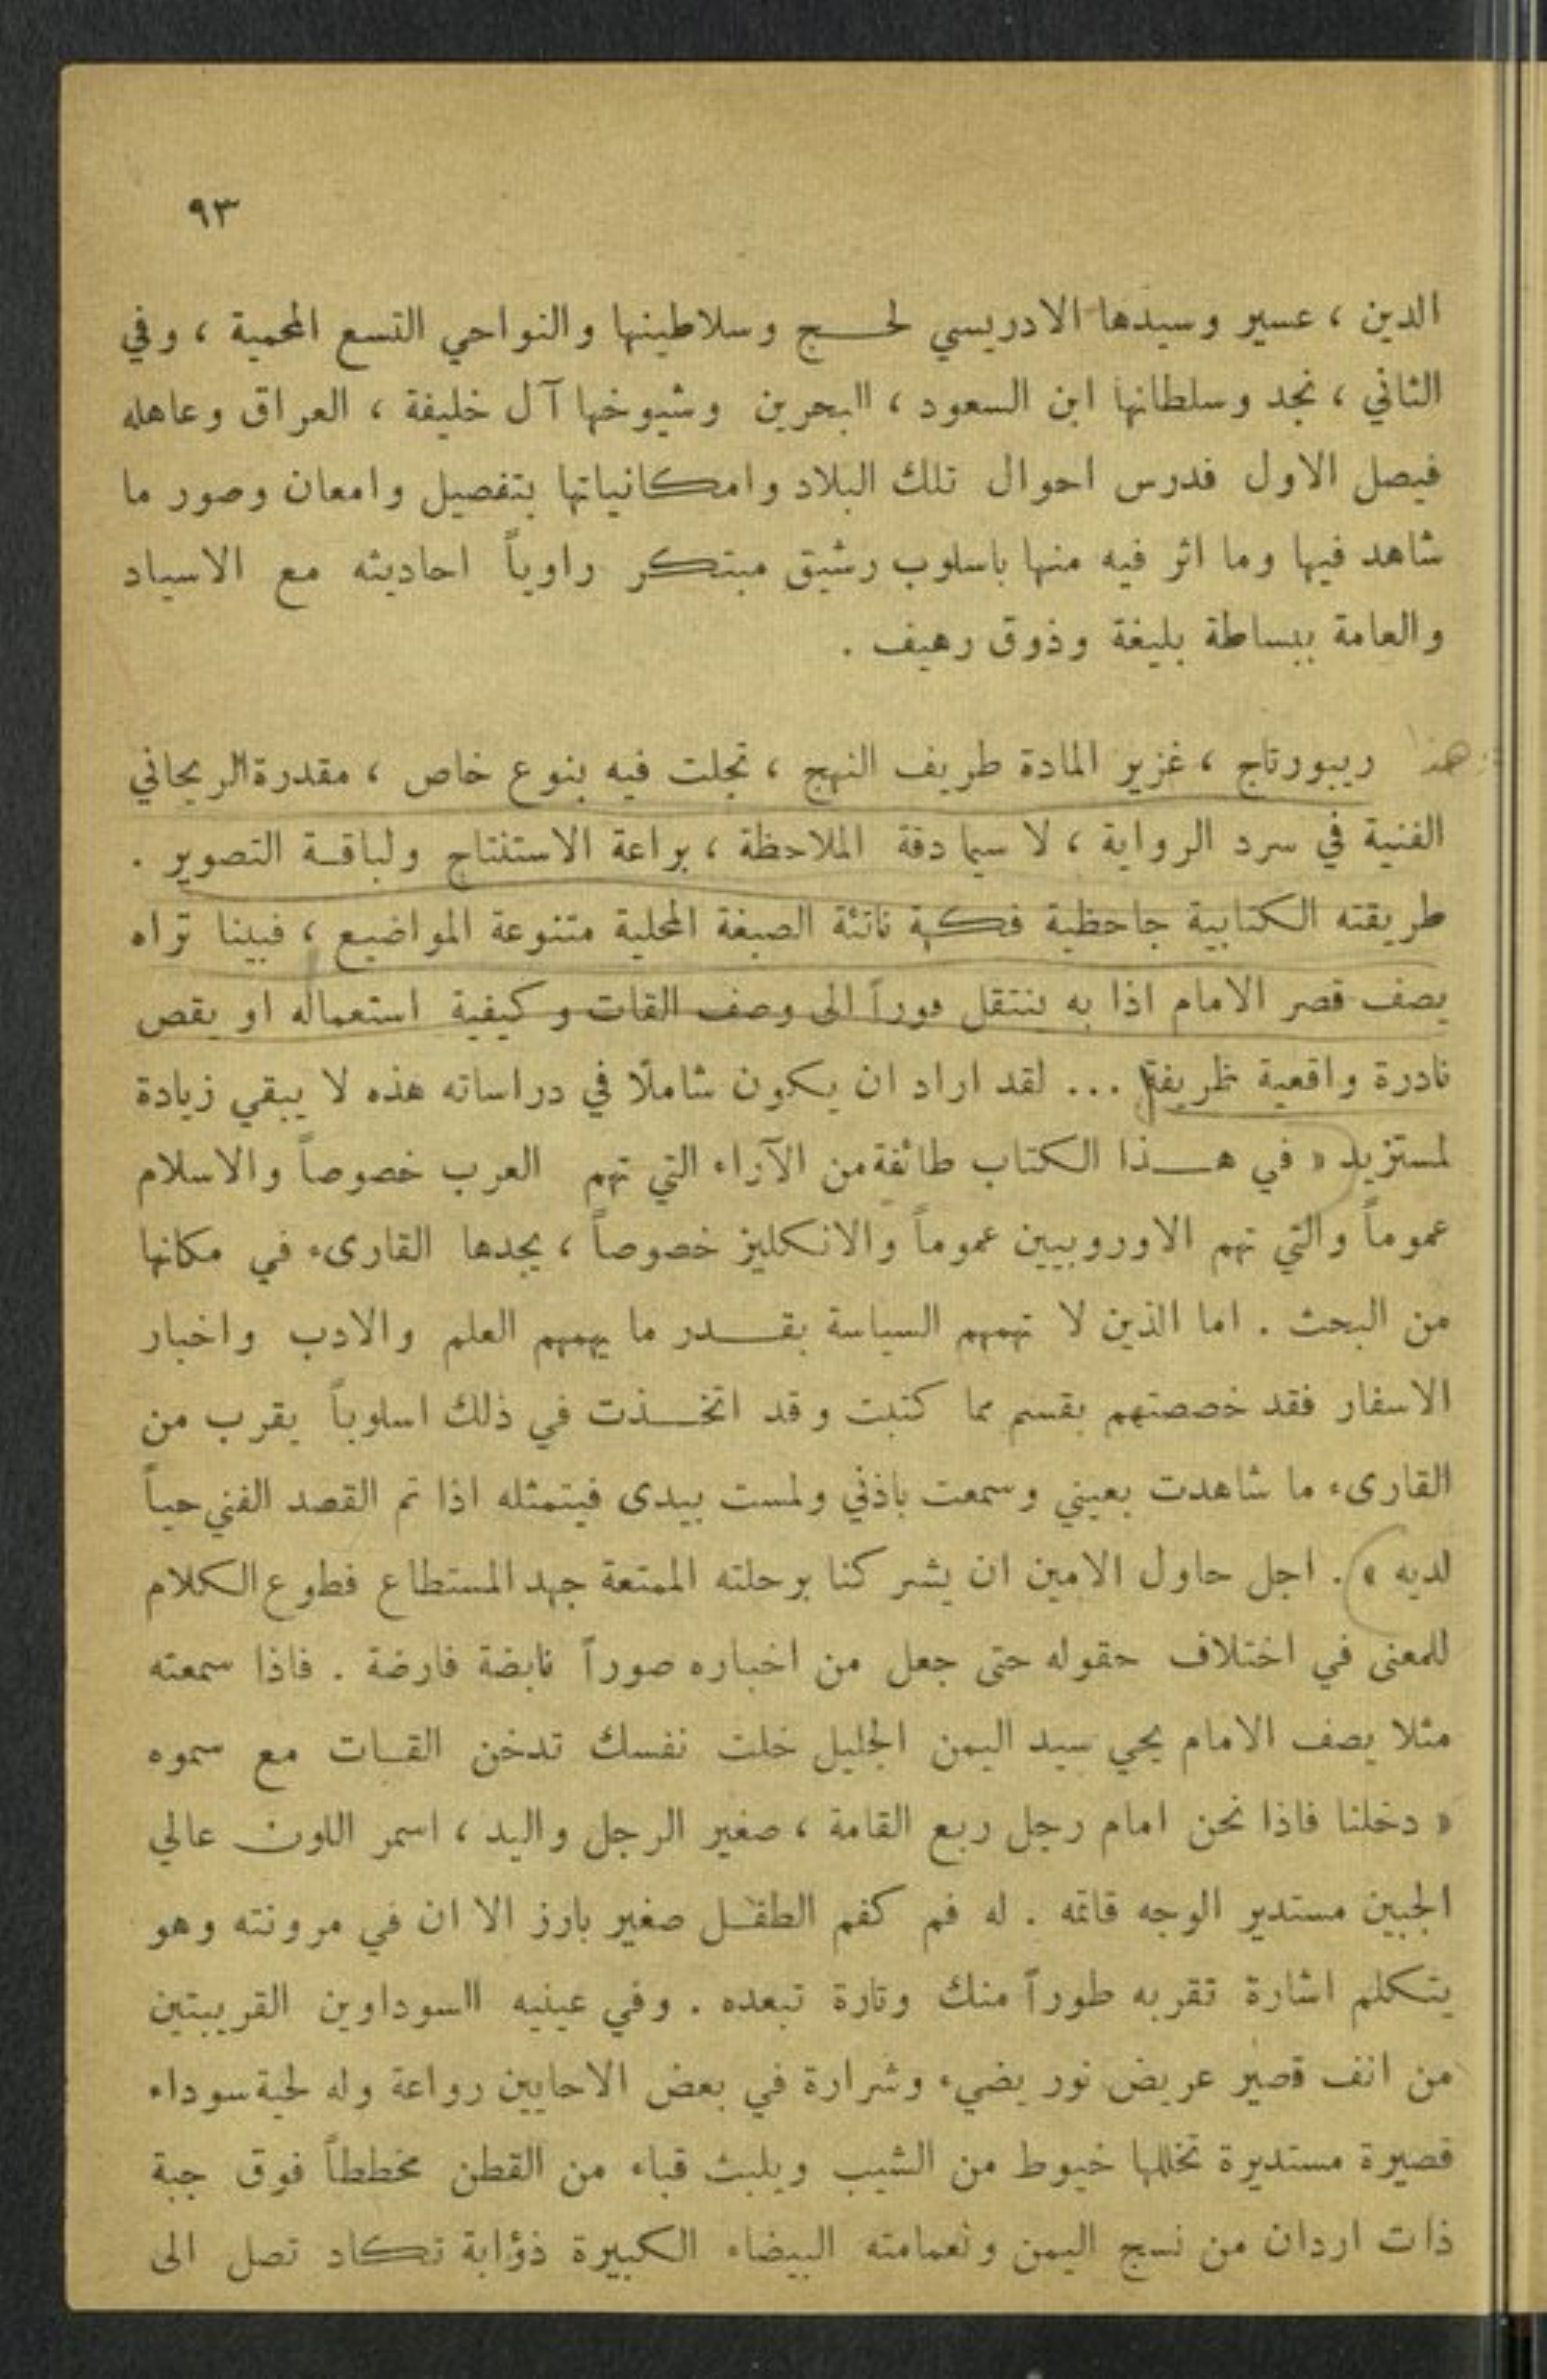 ٩٣
الدين ، عسير وسيدها الادريسي لحـــج وسلاطينها والنواحي التسع المحمية ، وفي
الثاني ، نجد وسلطانها ابن السعود ، البحرين وشيوخها آل خليفة ، العراق وعاهله
فيصل الاول فدرس احوال تلك البلاد وامكانياتها بتفصيل وامعان وصور ما
شاهد فيها وما اثر فيه منها باسلوب رشيق مبتكر راوياً احاديثه مع الاسياد
والعامة ببساطة بليغة وذوق رهيف .
هذا ريبورتاج ، غزير المادة طريف النهج ، تجلت فيه بنوع خاص ، مقدرة الريحاني
الفنية في سرد الرواية ، لا سيما دقة الملاحظة ، براعة الاستنتاج ولباقـة التصوير .
طريقته الكتابية جاحظية فكهة ناتئة الصبغة المحلية متنوعة المواضيع ، فبينا تراه
يصف قصر الامام اذا به ينتقل فوراً الى وصف القات وكيفية استعماله او يقص
نادرة واقعية ظريفة ... لقد اراد ان يكون شاملًا في دراساته هذه لا يبقي زيادة
لمستزيد « في هـــذا الكتاب طائفة من الآراء التي تهم العرب خصوصاً والاسلام
عموماً والتي تهم الاوروبيين عموماً والانكليز خصوصاً ، يجدها القارىء في مكانها
من البحث . اما الذين لا تهمهم السياسة بقـــدر ما يهمهم العلم والادب واخبار
الاسفار فقد خصصتهم بقسم مما كتبت وقد اتخـــذت في ذلك اسلوباً يقرب من
القارىء ما شاهدت بعيني وسمعت باذني ولمست بيدى فيتمثله اذا تم القصد الفني حياً
لديه » . اجل حاول الامين ان يشركنا برحلته الممتعة جهد المستطاع فطوع الكلام
للمعنى في اختلاف حقوله حتى جعل من اخباره صوراً نابضة فارضة . فاذا سمعته
مثلا يصف الامام يحي سيد اليمن الجليل خلت نفسك تدخن القـات مع سموه
« دخلنا فاذا نحن امام رجل ربع القامة ، صغير الرجل واليد ، اسمر اللون عالي
الجبين مستدير الوجه قاتمه . له فم كفم الطفـل صغير بارز الا ان في مرونته وهو
يتكلم اشارة تقربه طوراً منك وتارة تبعده . وفي عينيه السوداوين القريبتين
من انف قصير عريض نور يضيء وشرارة في بعض الاحايين رواعة وله لحية سوداء
قصيرة مستديرة تخللها خيوط من الشيب ويلبث قباء من القطن مخططاً فوق جبة
ذات اردان من نسج اليمن ولعمامته البيضاء الكبيرة ذؤابة تكاد تصل الى